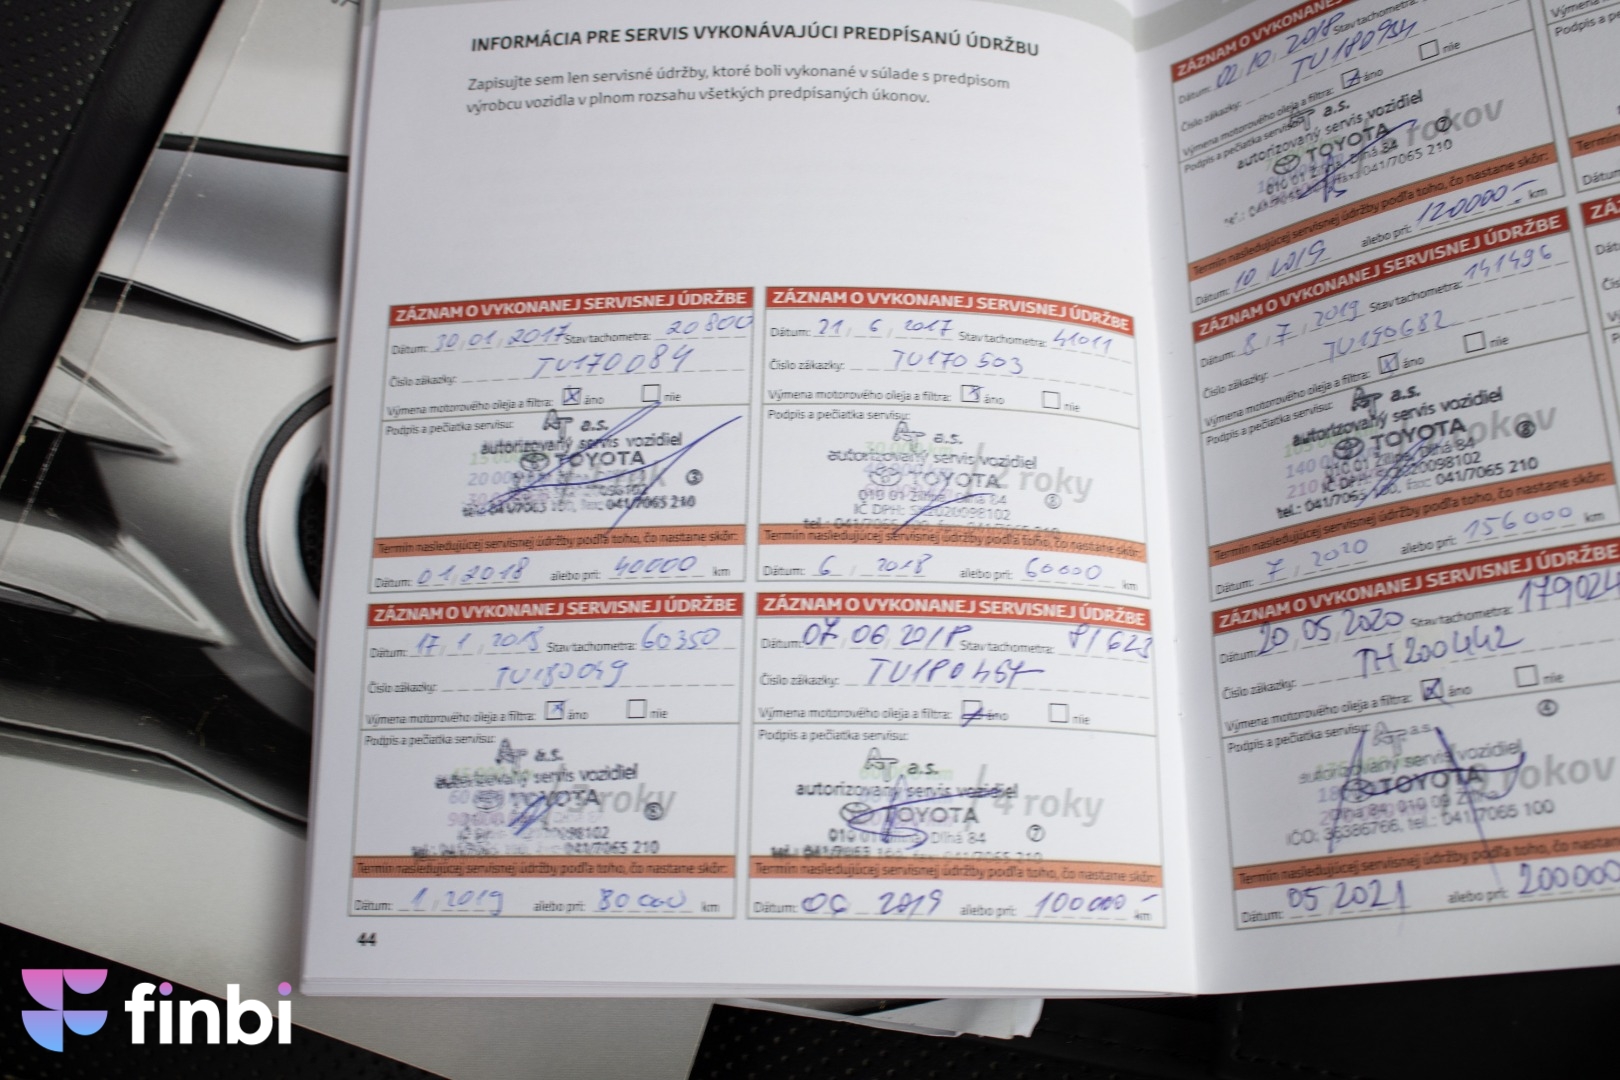 INFORMÁCIA PRE SERVIS VYKONÁVAJÚCI PREDPÍSANÚ ÚDRŽBU
Zapisujte sem len servisné údržby, ktoré boli vykonané v súlade s predpisom
výrobcu vozidla v plnom rozsahu všetkých predpísaných úkonov.
ZÁZNAM O VYKONANEJ SERVISNEJ ÚDRŽBE
Dátum: 30.01.2017 Stav tachometra: 20800
Číslo zákazky: TU170084
Výmena motorového oleja a filtra: áno nie
Podpis a pečiatka servisu:
a.s.
autorizovaný servis vozidiel
TOYOTA
3
Termín nasledujúcej servisnej údržby podľa toho, čo nastane skôr:
Dátum: 01.2018 alebo pri: 40000 km
ZÁZNAM O VYKONANEJ SERVISNEJ ÚDRŽBE
Dátum: 21. 6. 2017 Stav tachometra: 41011
Číslo zákazky: TU170503
Výmena motorového oleja a filtra: áno nie
Podpis a pečiatka servisu:
a.s.
autorizovaný servis vozidiel
TOYOTA
2 roky
010 01 Žilina, Dlhá 84
Termín nasledujúcej servisnej údržby podľa toho, čo nastane skôr:
Dátum: 6. 2018 alebo pri: 60000 km
ZÁZNAM O VYKONANEJ SERVISNEJ ÚDRŽBE
Dátum: 17. 1. 2018 Stav tachometra: 60350
Číslo zákazky: TU180049
Výmena motorového oleja a filtra: áno nie
Podpis a pečiatka servisu:
a.s.
autorizovaný servis vozidiel
TOYOTA
roky
Termín nasledujúcej servisnej údržby podľa toho, čo nastane skôr:
Dátum: 1. 2019 alebo pri: 80000 km
ZÁZNAM O VYKONANEJ SERVISNEJ ÚDRŽBE
Dátum: 07.06.2018 Stav tachometra: 81623
Číslo zákazky: TU180457
Výmena motorového oleja a filtra: áno nie
Podpis a pečiatka servisu:
a.s.
autorizovaný servis vozidiel
TOYOTA
4 roky
7
Termín nasledujúcej servisnej údržby podľa toho, čo nastane skôr:
Dátum: 06 2019 alebo pri: 100000 km
44
ZÁZNAM O VYKONANEJ
Dátum: 02.10.2018 Stav tachometra:
Číslo zákazky: TU180934
Výmena motorového oleja a filtra: áno nie
Podpis a pečiatka servisu:
a.s.
autorizovaný servis vozidiel
TOYOTA
rokov
7
Termín nasledujúcej servisnej údržby podľa toho, čo nastane skôr:
Dátum: 10 2019 alebo pri: 120000 km
ZÁZNAM O VYKONANEJ SERVISNEJ ÚDRŽBE
Dátum: 8. 7. 2019 Stav tachometra: 141496
Číslo zákazky: TU190682
Výmena motorového oleja a filtra: áno nie
Podpis a pečiatka servisu:
a.s.
autorizovaný servis vozidiel
TOYOTA
rokov
010 01 Žilina, Dlhá 84
Termín nasledujúcej servisnej údržby podľa toho, čo nastane skôr:
Dátum: 7. 2020 alebo pri: 156000 km
ZÁZNAM O VYKONANEJ SERVISNEJ ÚDRŽBE
Dátum: 20.05.2020 Stav tachometra: 179024
Číslo zákazky: TH200442
Výmena motorového oleja a filtra: áno nie
Podpis a pečiatka servisu:
a.s.
4
autorizovaný servis vozidiel
TOYOTA
rokov
IČO: 36386766, tel.: 041/7065 100
Termín nasledujúcej servisnej údržby podľa toho, čo nastane
Dátum: 05 2021 alebo pri: 200000
finbi